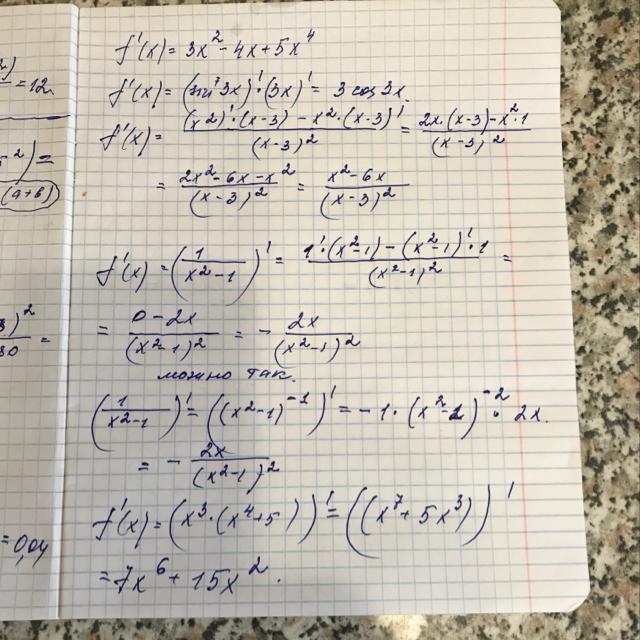 f'(x) = 3x² - 4x + 5x⁴
f'(x) = (sin 3x)' · (3x)' = 3 cos 3x.
f'(x) = \frac{(x²)' · (x-3) - x² · (x-3)'}{(x-3)²} = \frac{2x·(x-3) - x²·1}{(x-3)²}
= \frac{2x² - 6x - x²}{(x-3)²} = \frac{x² - 6x}{(x-3)²}
f'(x) = (\frac{1}{x²-1})' = \frac{1'·(x²-1) - (x²-1)'·1}{(x²-1)²} =
= \frac{0 - 2x}{(x²-1)²} = - \frac{2x}{(x²-1)²}
можно так.
(\frac{1}{x²-1})' = ((x²-1)⁻¹)' = -1 · (x²-1)⁻² · 2x.
= - \frac{2x}{(x²-1)²}
f'(x) = (x³·(x⁴+5))' = ((x⁷ + 5x³))'
= 7x⁶ + 15x².
²)
= 12
5²) =
(a+b)
3)²
30 =
= 0,04